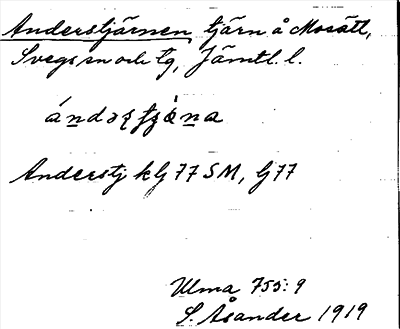 Anderstjärnen tjärn å Mosätt,
Svegs sn och tg, Jämtl. l.
Anderstj k Lj 77 SM, Lj 77
Ulma 755:9
S. Åsander 1919